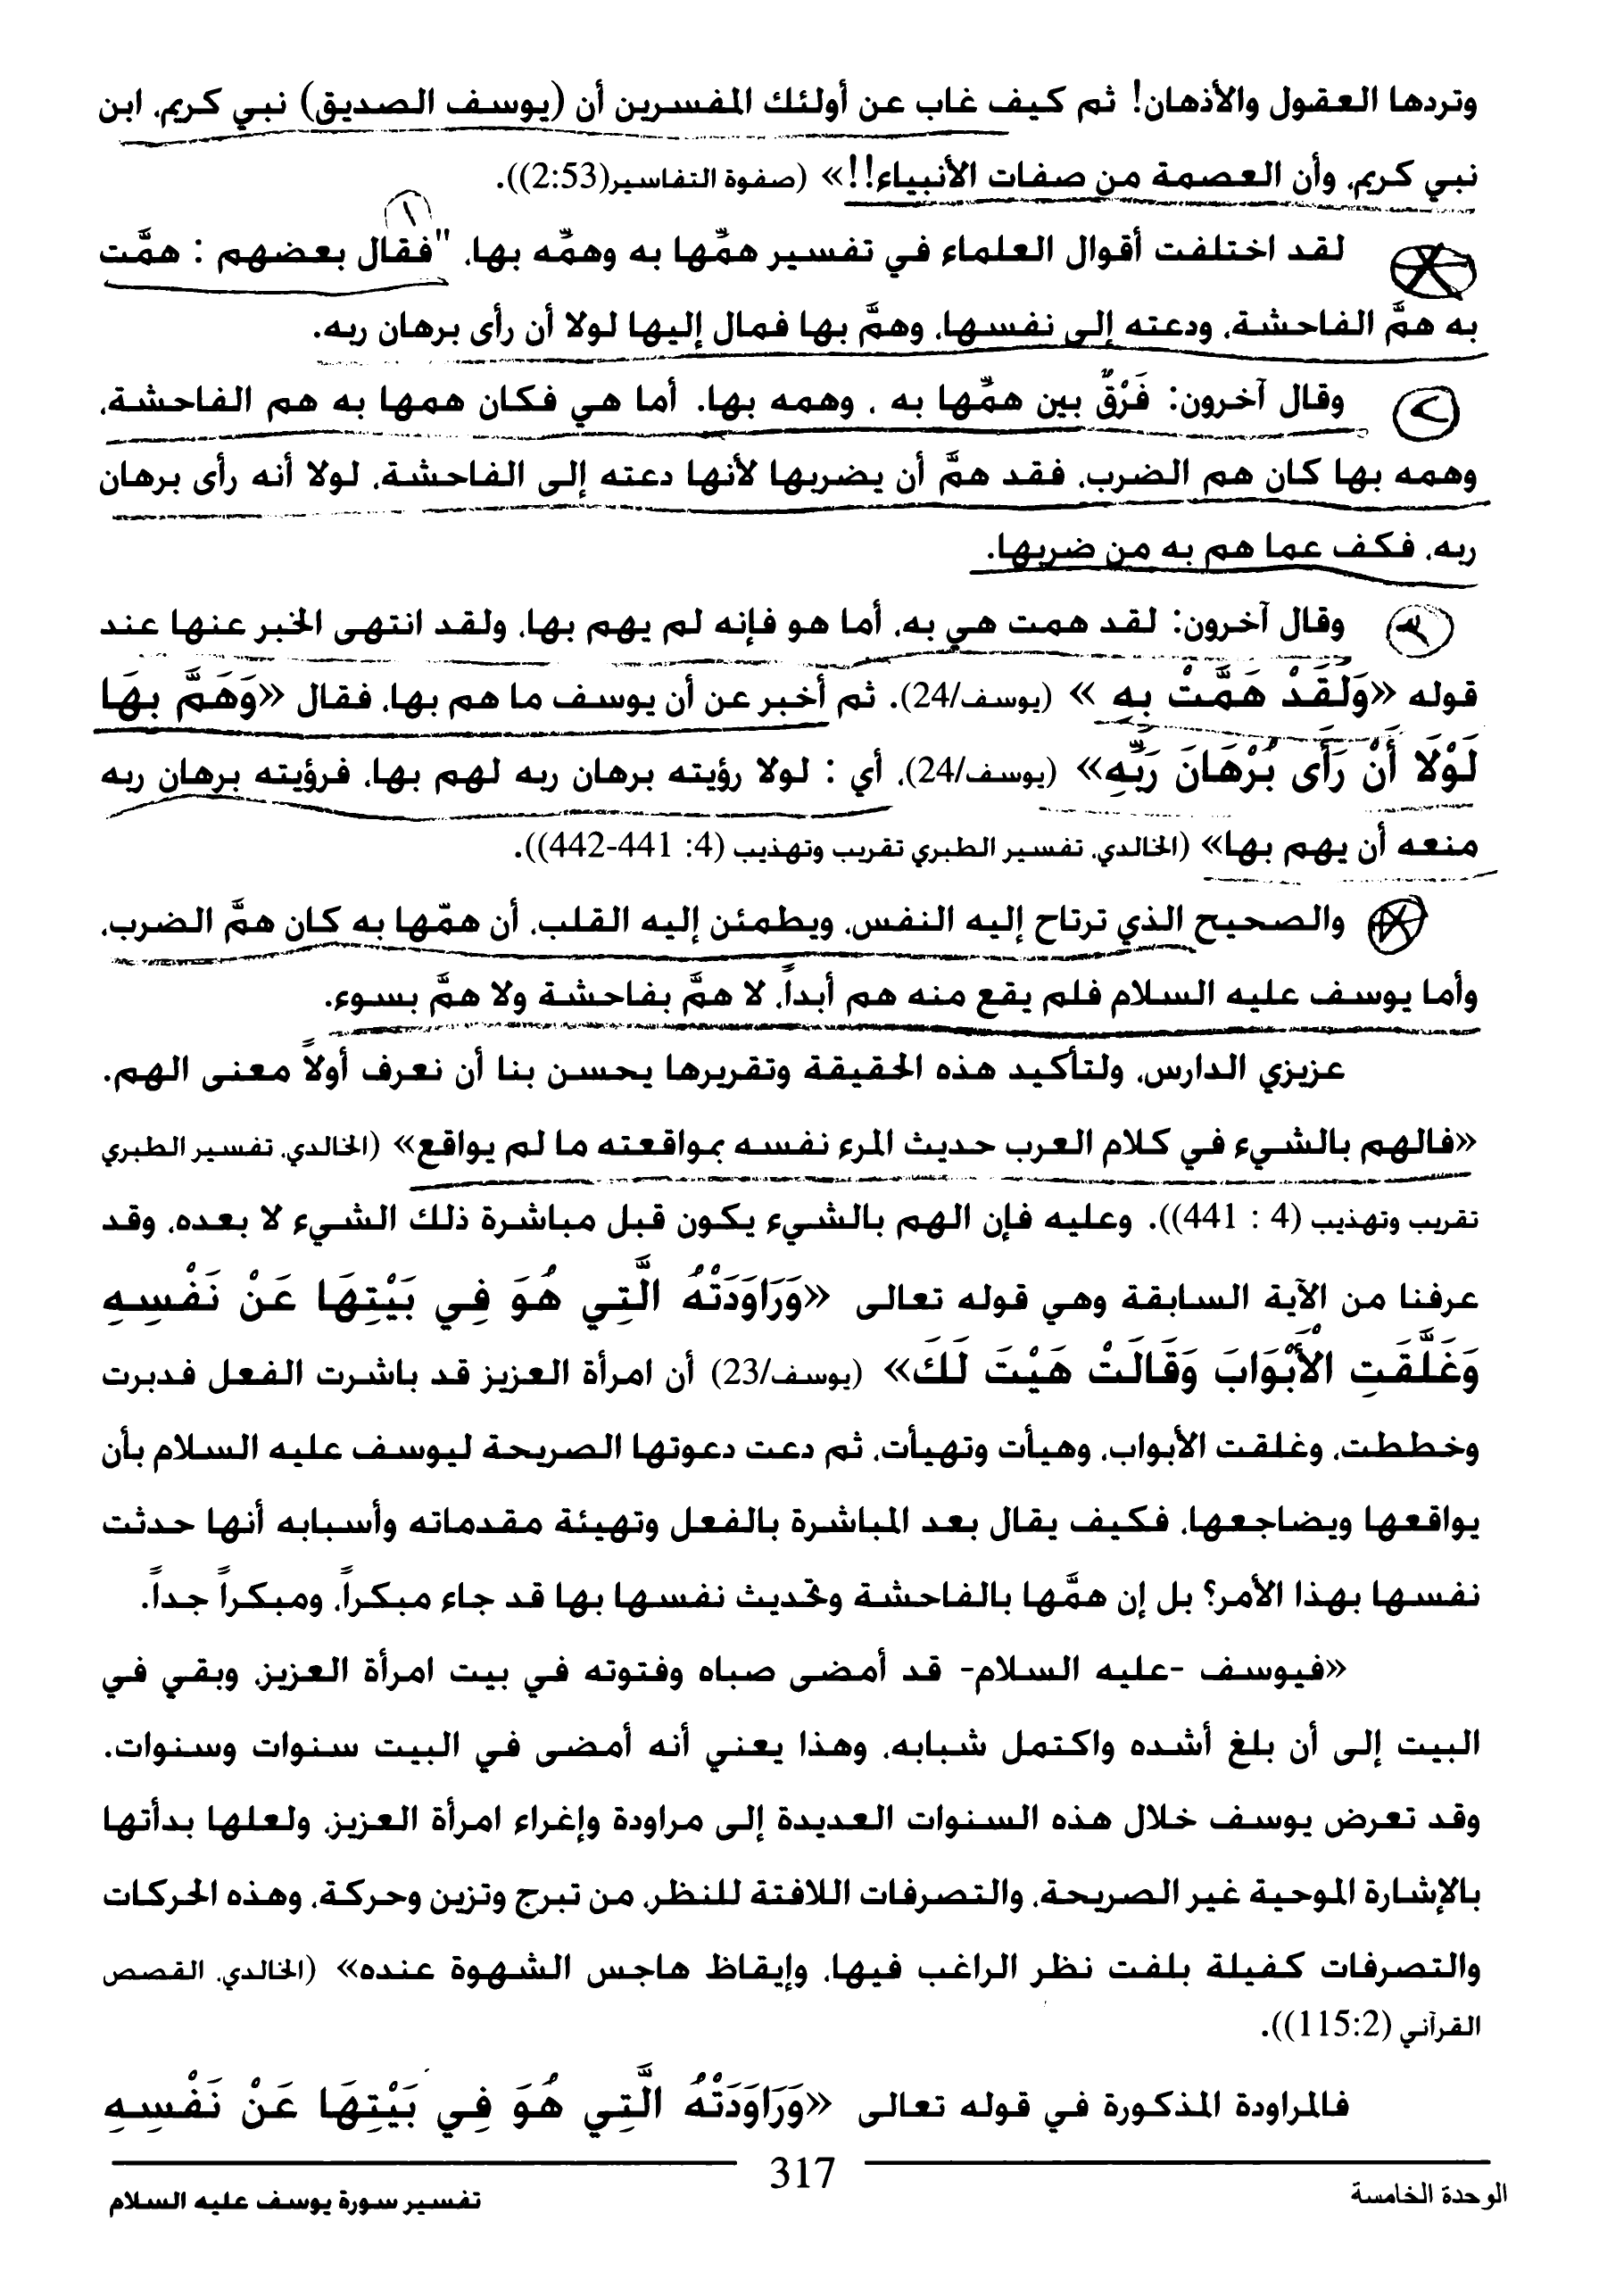 وتردها العقول والأذهان! ثم كيف غاب عن أولئك المفسرين أن (يوسف الصديق) نبي كريم، ابن
نبي كريم، وأن العصمة من صفات الأنبياء!!» (صفوة التفاسير(2:53)).
١
لقد اختلفت أقوال العلماء في تفسير همّها به وهمّه بها، "فقال بعضهم : همَّت
به همَّ الفاحشة، ودعته إلى نفسها، وهمَّ بها فمال إليها لولا أن رأى برهان ربه.
٢ وقال آخرون: فَرْقٌ بين همّها به ، وهمه بها. أما هي فكان همها به هم الفاحشة،
وهمه بها كان هم الضرب، فقد همَّ أن يضربها لأنها دعته إلى الفاحشة، لولا أنه رأى برهان
ربه، فكف عما هم به من ضربها.
٣ وقال آخرون: لقد همت هي به، أما هو فإنه لم يهم بها، ولقد انتهى الخبر عنها عند
قوله «وَلَقَدْ هَمَّتْ بِهِ » (يوسف/24). ثم أخبر عن أن يوسف ما هم بها، فقال «وَهَمَّ بِهَا
لَوْلَا أَنْ رَأَى بُرْهَانَ رَبِّهِ» (يوسف/24)، أي : لولا رؤيته برهان ربه لهم بها، فرؤيته برهان ربه
منعه أن يهم بها» (الخالدي، تفسير الطبري تقريب وتهذيب (4: 441-442)).
والصحيح الذي ترتاح إليه النفس، ويطمئن إليه القلب، أن همّها به كان همَّ الضرب،
وأما يوسف عليه السلام فلم يقع منه هم أبداً، لا همَّ بفاحشة ولا همَّ بسوء.
عزيزي الدارس، ولتأكيد هذه الحقيقة وتقريرها يحسن بنا أن نعرف أولاً معنى الهم.
«فالهم بالشيء في كلام العرب حديث المرء نفسه بمواقعته ما لم يواقع» (الخالدي، تفسير الطبري
تقريب وتهذيب (4 : 441)). وعليه فإن الهم بالشيء يكون قبل مباشرة ذلك الشيء لا بعده، وقد
عرفنا من الآية السابقة وهي قوله تعالى «وَرَاوَدَتْهُ الَّتِي هُوَ فِي بَيْتِهَا عَنْ نَفْسِهِ
وَغَلَّقَتِ الْأَبْوَابَ وَقَالَتْ هَيْتَ لَكَ» (يوسف/23) أن امرأة العزيز قد باشرت الفعل فدبرت
وخططت، وغلقت الأبواب، وهيأت وتهيأت، ثم دعت دعوتها الصريحة ليوسف عليه السلام بأن
يواقعها ويضاجعها، فكيف يقال بعد المباشرة بالفعل وتهيئة مقدماته وأسبابه أنها حدثت
نفسها بهذا الأمر؟ بل إن همَّها بالفاحشة وتحديث نفسها بها قد جاء مبكراً، ومبكراً جداً.
«فيوسف -عليه السلام- قد أمضى صباه وفتوته في بيت امرأة العزيز، وبقي في
البيت إلى أن بلغ أشده واكتمل شبابه، وهذا يعني أنه أمضى في البيت سنوات وسنوات.
وقد تعرض يوسف خلال هذه السنوات العديدة إلى مراودة وإغراء امرأة العزيز، ولعلها بدأتها
بالإشارة الموحية غير الصريحة، والتصرفات اللافتة للنظر، من تبرج وتزين وحركة، وهذه الحركات
والتصرفات كفيلة بلفت نظر الراغب فيها، وإيقاظ هاجس الشهوة عنده» (الخالدي، القصص
القرآني (115:2)).
فالمراودة المذكورة في قوله تعالى «وَرَاوَدَتْهُ الَّتِي هُوَ فِي بَيْتِهَا عَنْ نَفْسِهِ
317
الوحدة الخامسة
تفسير سورة يوسف عليه السلام